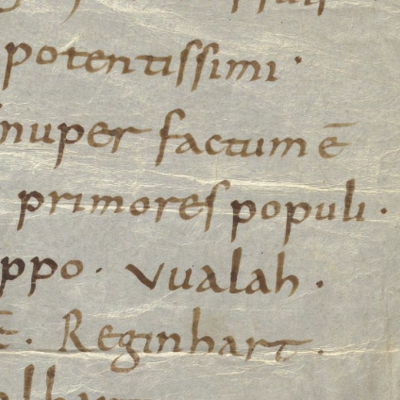 potentissimi ·
nuper factum ē
primores populi ·
ppo · Vualah ·
ē · Reginhart ·